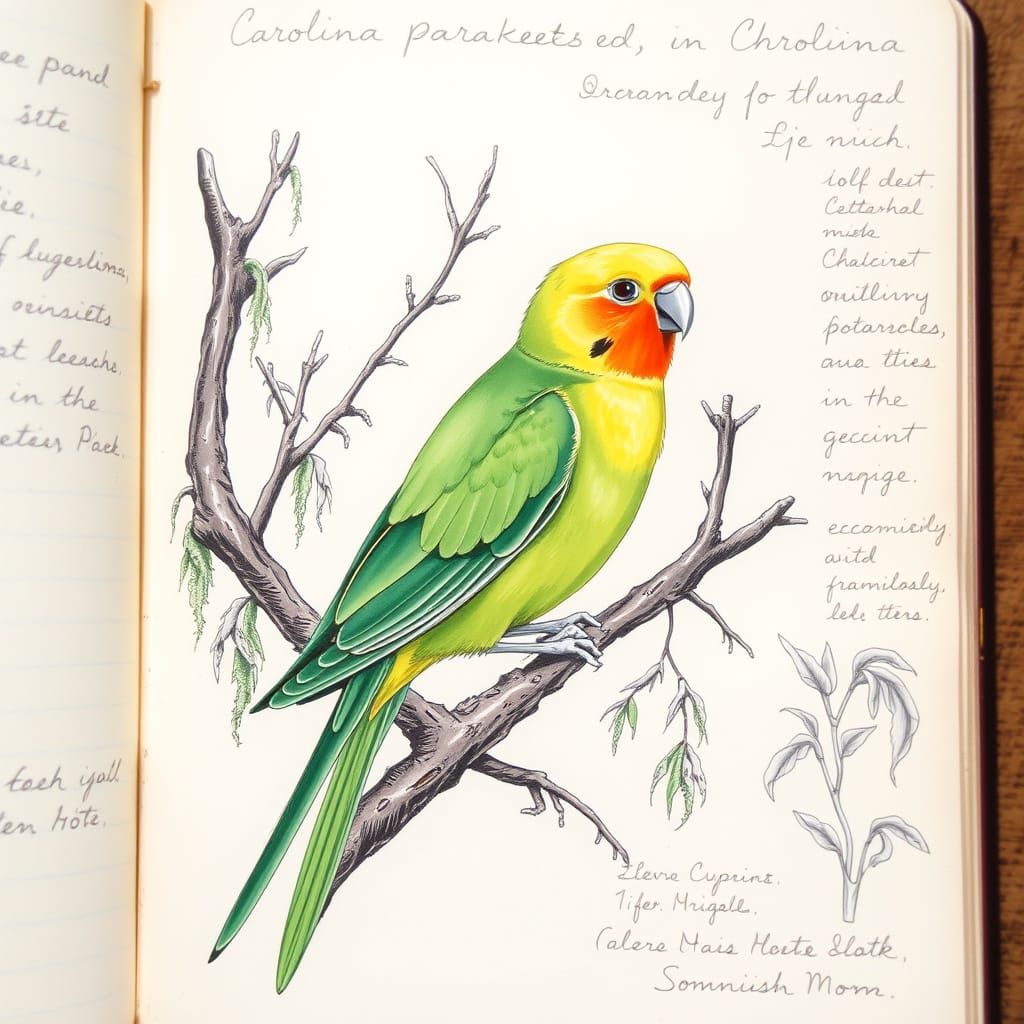 ee pand
site
ies,
ie.
f lugestimes,
oeinsiets
at leache.
in the
eteas Pack.
foeh iyall
len Hote.
Carolina parakeets ed, in Chroliina
Orcrandey fo tlungad
Lje niich.
iolf dest.
Cettashal
miste
Chalciret
onuitlivny
potarscles,
aua tties
in the
geccint
nsqige.
eccamisily.
asitd
framilosly.
lele tters.
Elevre Cuprins.
Tifer. Mrigalls.
Calere Mais Hocte Slatk,
Somniish Mom.